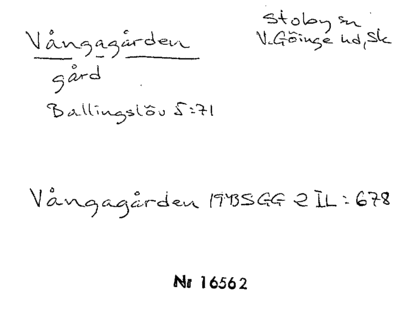 Vångagården
Stoby sn
V. Göinge hd, Sk
gård
Ballingslöv 5:71
Vångagården 1943 SGG 2 IL:678
Nr 16562